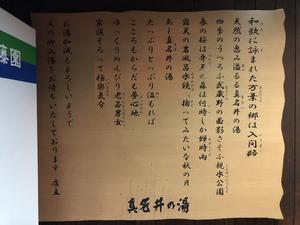 和歌に詠まれた万葉の郷は入間路
天然の恵み溢るる真名井の湯
四季のうつろふ武蔵野の面影さそふ親水公園
春の桜は弁天の森は何時しか蝉時雨
露天の岩風呂水鏡、掬ってみたいな秋の月
あゝ真名井の湯
たっぷりとっぷり温もれば
こころもからだも夢心地
ゆっくりのんびり老若男女
家族そろって極楽気分
お湯加減もよろしいようで
又の御入湯をお待ちいたしております 店主
真名井の湯
藤園